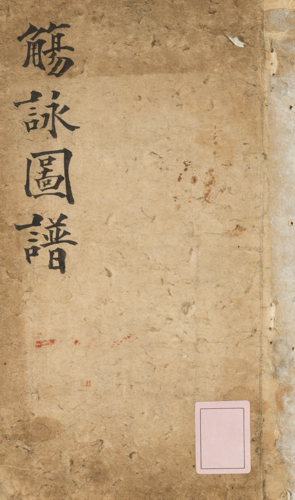 觴詠圖譜